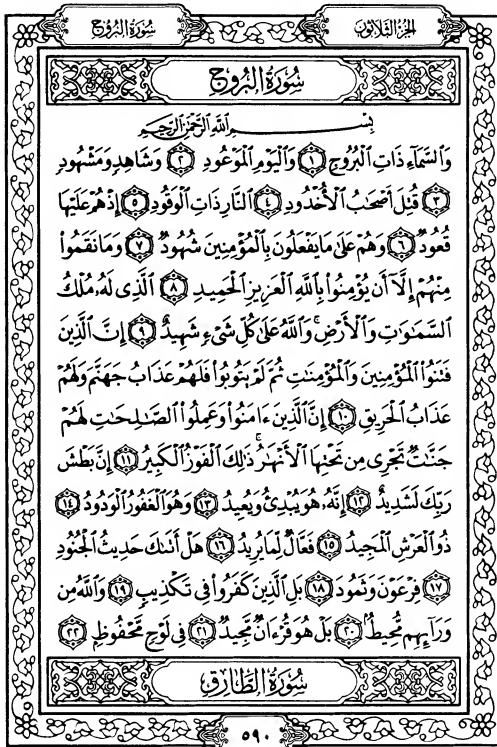 سُورَةُ البُرُوجِ
الجُزْءُ الثَّلَاثُونَ
سُورَةُ البُرُوجِ
بِسْمِ اللَّهِ الرَّحْمَٰنِ الرَّحِيمِ
وَالسَّمَاءِ ذَاتِ الْبُرُوجِ ۝١ وَالْيَوْمِ الْمَوْعُودِ ۝٢ وَشَاهِدٍ وَمَشْهُودٍ
۝٣ قُتِلَ أَصْحَٰبُ الْأُخْدُودِ ۝٤ النَّارِ ذَاتِ الْوَقُودِ ۝٥ إِذْ هُمْ عَلَيْهَا
قُعُودٌ ۝٦ وَهُمْ عَلَىٰ مَا يَفْعَلُونَ بِالْمُؤْمِنِينَ شُهُودٌ ۝٧ وَمَا نَقَمُوا
مِنْهُمْ إِلَّا أَن يُؤْمِنُوا بِاللَّهِ الْعَزِيزِ الْحَمِيدِ ۝٨ الَّذِي لَهُ مُلْكُ
السَّمَٰوَٰتِ وَالْأَرْضِ ۚ وَاللَّهُ عَلَىٰ كُلِّ شَيْءٍ شَهِيدٌ ۝٩ إِنَّ الَّذِينَ
فَتَنُوا الْمُؤْمِنِينَ وَالْمُؤْمِنَٰتِ ثُمَّ لَمْ يَتُوبُوا فَلَهُمْ عَذَابُ جَهَنَّمَ وَلَهُمْ
عَذَابُ الْحَرِيقِ ۝١٠ إِنَّ الَّذِينَ ءَامَنُوا وَعَمِلُوا الصَّٰلِحَٰتِ لَهُمْ
جَنَّٰتٌ تَجْرِي مِن تَحْتِهَا الْأَنْهَٰرُ ۚ ذَٰلِكَ الْفَوْزُ الْكَبِيرُ ۝١١ إِنَّ بَطْشَ
رَبِّكَ لَشَدِيدٌ ۝١٢ إِنَّهُ هُوَ يُبْدِئُ وَيُعِيدُ ۝١٣ وَهُوَ الْغَفُورُ الْوَدُودُ ۝١٤
ذُو الْعَرْشِ الْمَجِيدُ ۝١٥ فَعَّالٌ لِّمَا يُرِيدُ ۝١٦ هَلْ أَتَىٰكَ حَدِيثُ الْجُنُودِ
۝١٧ فِرْعَوْنَ وَثَمُودَ ۝١٨ بَلِ الَّذِينَ كَفَرُوا فِي تَكْذِيبٍ ۝١٩ وَاللَّهُ مِن
وَرَآئِهِم مُّحِيطٌ ۝٢٠ بَلْ هُوَ قُرْءَانٌ مَّجِيدٌ ۝٢١ فِي لَوْحٍ مَّحْفُوظٍ ۝٢٢
سُورَةُ الطَّارِقِ
٥٩٠